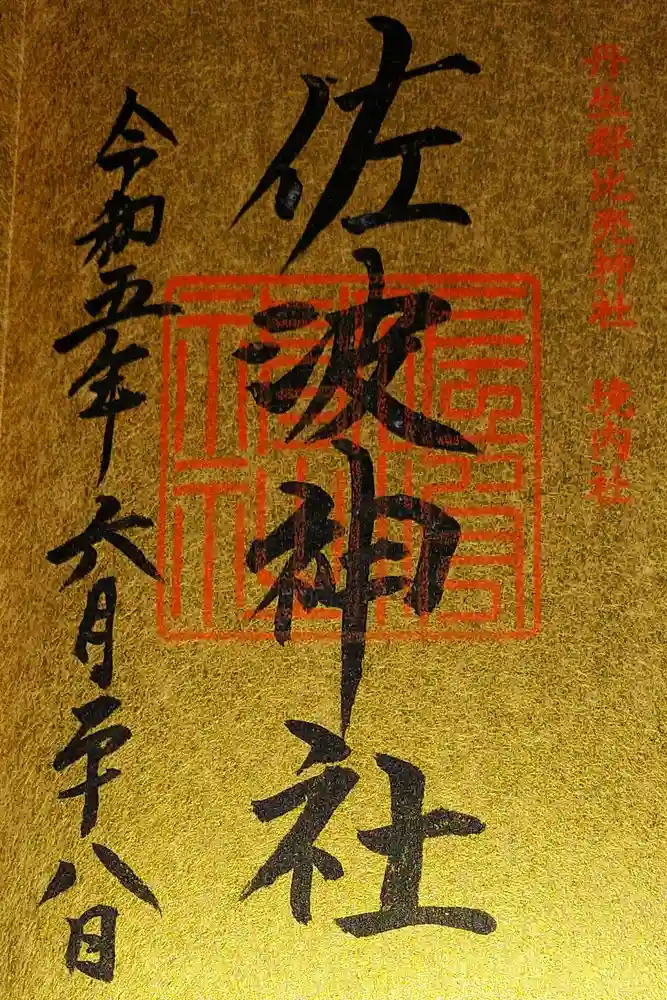 丹生都比売神社 境内社
佐波神社
令和五年六月二十八日